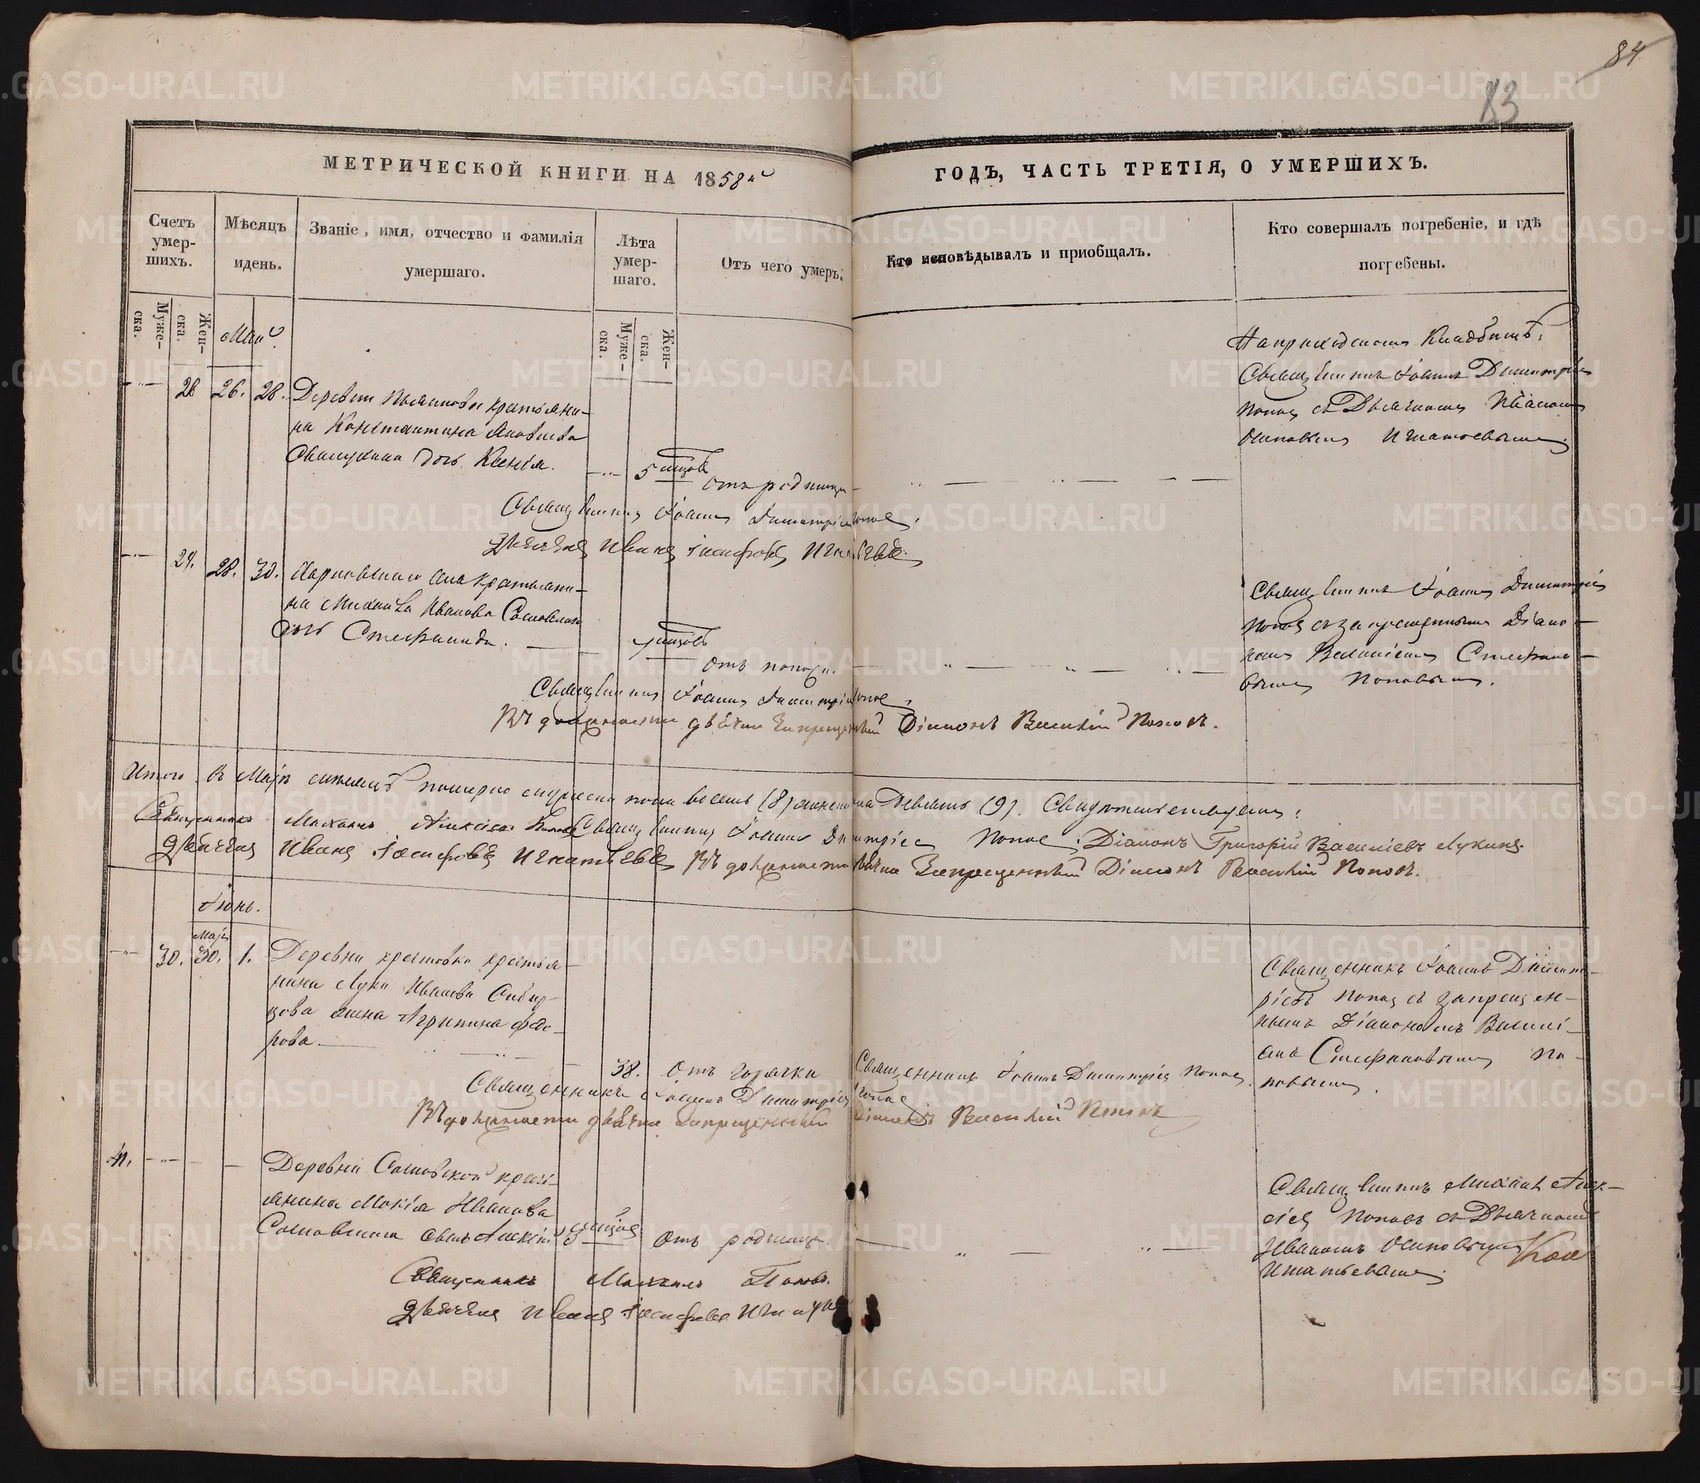 84
83
МЕТРИЧЕСКОЙ КНИГИ НА 1858й
ГОДЪ, ЧАСТЬ ТРЕТІЯ, О УМЕРШИХЪ.
Счетъ умер-шихъ.
Мѣсяцъ идень.
Званіе, имя, отчество и фамилія умершаго.
Лѣта умер-шаго.
Отъ чего умеръ.
Кто исповѣдывалъ и пріобщалъ.
Кто совершалъ погребеніе, и гдѣ погребены.
Муже-ска.
Жен-ска.
Муже-ска.
Жен-ска.
Май
28 26. 28. Деревни крестьяни-
на Константина Яковлева
дочь Ксенія.
5
отъ родимца
На приходскомъ Кладбищѣ.
Священникъ Іоаннъ Димитріевъ
Поповъ съ Дьячкомъ Иваномъ
Осиповымъ Игнатьевымъ.
Священникъ Іоаннъ Димитріевъ Поповъ.
Дьячекъ Иванъ Іосифовъ Игнатьевъ.
29. 28. 30. села крестьяни-
на Михаила Иванова
дочь Стефанида.
отъ поноса.
Священникъ Іоаннъ Димитріевъ
Поповъ съ запрещеннымъ Діако-
номъ Василіемъ Стефано-
вымъ Поповымъ.
Священникъ Іоаннъ Димитріевъ Поповъ.
Въ должности дьячка Запрещенный Діаконъ Василій Поповъ.
Итого въ Маѣ мѣсяцѣ померло мужеска пола восемь (8) женска девять (9). Свидѣтельствуемъ:
Священникъ Михаилъ Алексѣевъ Поповъ Священникъ Іоаннъ Димитріевъ Поповъ Діаконъ Григорій Василіевъ Лукинъ
Дьячекъ Иванъ Іосифовъ Игнатьевъ Въ должности дьячка Запрещенный Діаконъ Василій Поповъ.
Іюнь.
Маія
30. 30. 1. Деревни крестья-
нина Луки Иванова Сибир-
цова жена Агрипина Фео-
рова
38. Отъ горячки
Священникъ Іоаннъ Димитріевъ Поповъ.
Священникъ Іоаннъ Димит-
ріевъ Поповъ съ запрещен-
нымъ Діакономъ Василі-
емъ Стефановымъ По-
повымъ.
Священникъ Іоаннъ Димитріевъ Поповъ
Въ должности дьячка Запрещенный Діаконъ Василій Поповъ
Деревни Сосновской крест-
янина Мокія Иванова
Сосновскихъ сынъ
5
Отъ родимца.
Священникъ Михаилъ Алек-
сѣевъ Поповъ съ Дьячкомъ
Иваномъ Осиповымъ
Игнатьевымъ.
Священникъ Михаилъ Поповъ.
Дьячекъ Иванъ Іосифовъ Игнатьевъ
METRIKI.GASO-URAL.RU